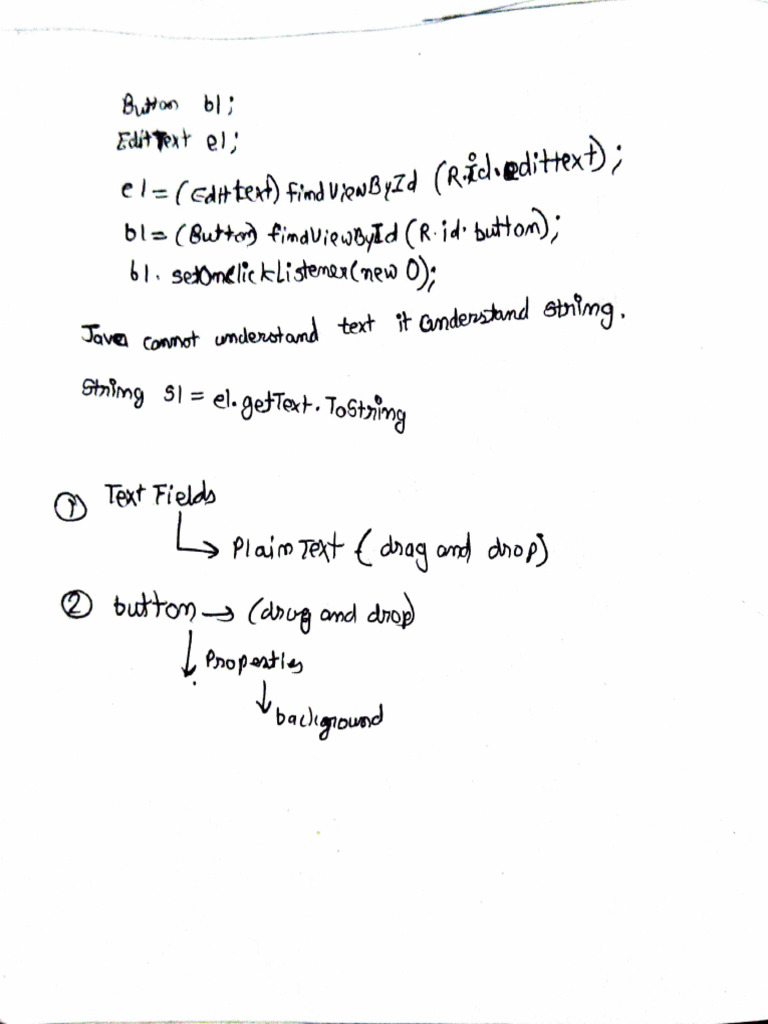 Button b1;
EditText e1;
e1 = (Edittext) findViewById (R.id.edittext);
b1 = (Button) findViewById (R.id.button);
b1. setOnClickListener(new O);
Java cannot understand text it understand string.
String S1 = e1.getText.ToString
① Text Fields
↳ Plain Text ( drag and drop)
② button → (drag and drop)
↓ Properties
↓ background